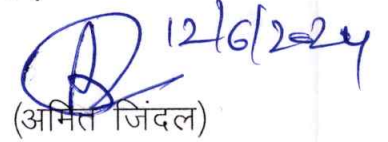 12/6/2024
(अमित जिंदल)